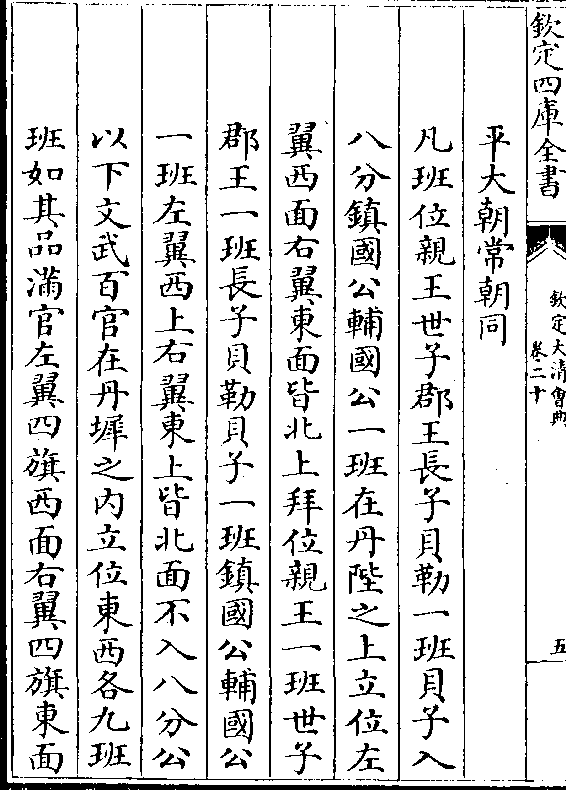 欽定四庫全書
欽定大清會典
卷二十
五
平大朝常朝同
凡班位親王世子郡王長子貝勒一班貝子入
八分鎮國公輔國公一班在丹陛之上立位左
翼西面右翼東面皆北上拜位親王一班世子
郡王一班長子貝勒貝子一班鎮國公輔國公
一班左翼西上右翼東上皆北面不入八分公
以下文武百官在丹墀之内立位東西各九班
班如其品滿官左翼四旗西面右翼四旗東面